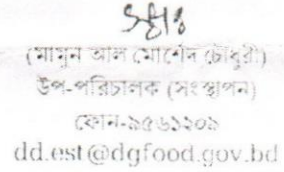 (মামুন আল মোর্শেদ চৌধুরী)
উপ-পরিচালক (সংস্থাপন)
ফোন-৯৫৬১২০১
dd.est@dgfood.gov.bd